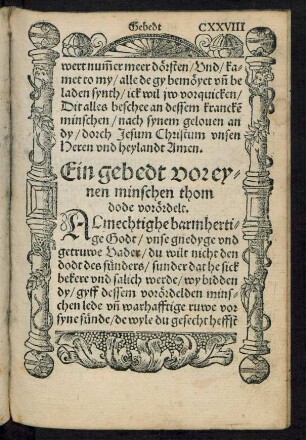 Gebedt CXXVIII
wert num̄er meer dörsten/Vnd/ka-
met to my/alle de gy bemöyet vn̄ be
laden synth/ick wil jw vorquicken/
Dit alles beschee an dessem kranckē
minschen/nach synem gelouen an
dy/dorch Jesum Christum vnsen
Heren vnd heylandt Amen.
Ein gebedt vor ey-
nen minschen thom
dode vorördelt.
ALmechtighe barmherti-
ge Godt/vnse gnedyge vnd
getruwe Vader/du wilt nicht den
dodt des sünders/sunder dat he sick
bekere vnd salich werde/wy bidden
dy/gyff dessem vorördelden mins-
chen lede vn̄ warhafftige ruwe vor
syne sünde/de wyle du gesecht heffst